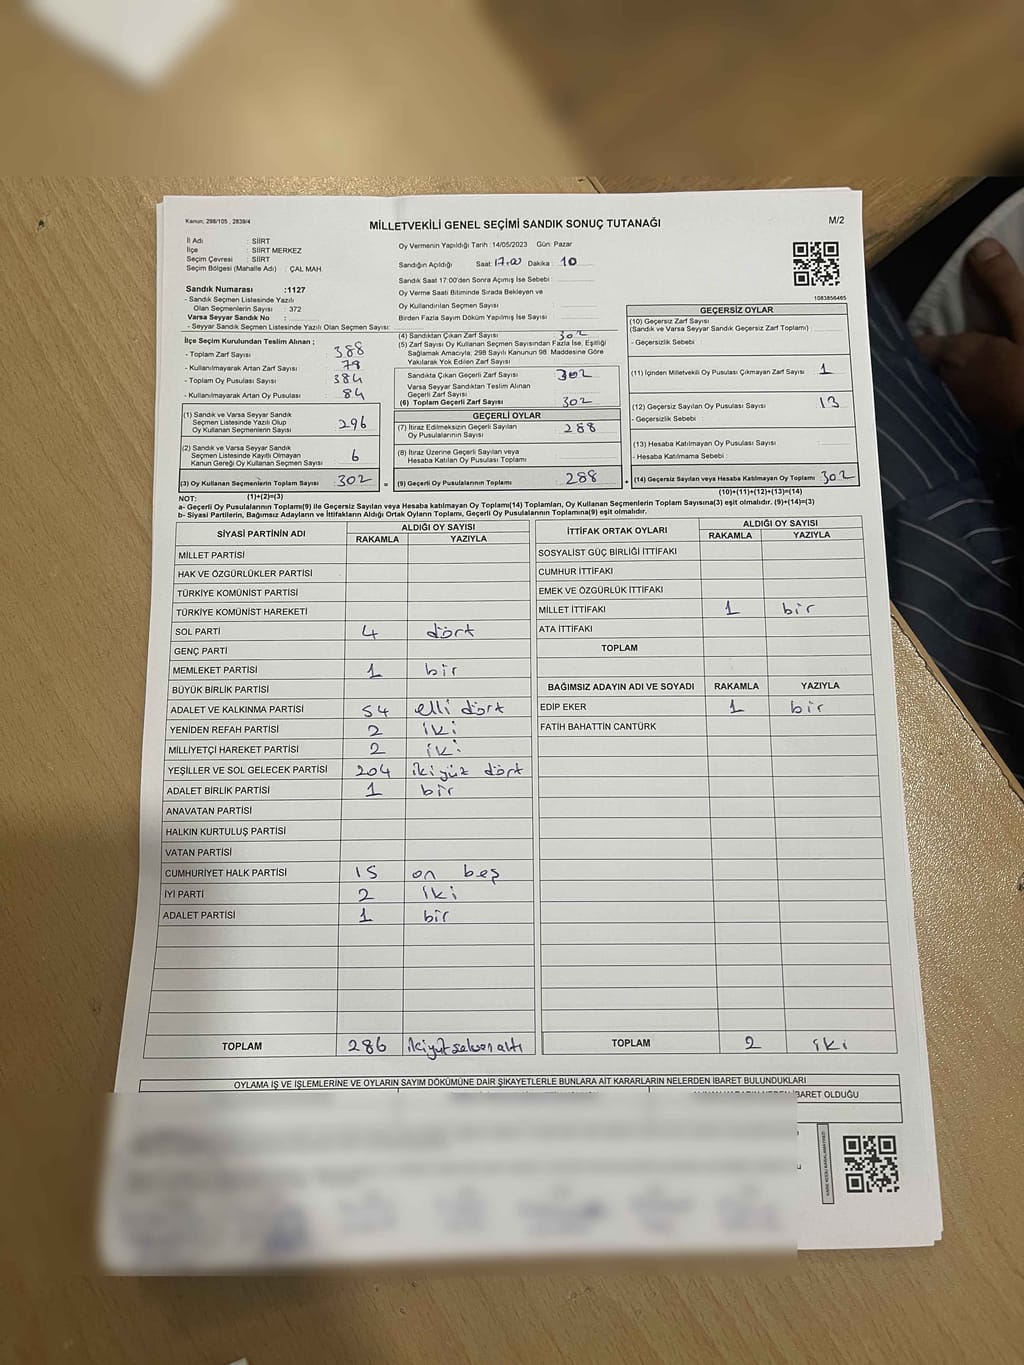 Kanun; 298/105 , 2839/4
MİLLETVEKİLİ GENEL SEÇİMİ SANDIK SONUÇ TUTANAĞI
M/2
İl Adı : SİİRT
İlçe : SİİRT MERKEZ
Seçim Çevresi : SİİRT
Seçim Bölgesi (Mahalle Adı) : ÇAL MAH.
Oy Vermenin Yapıldığı Tarih : 14/05/2023 Gün: Pazar
Sandığın Açıldığı Saat: 17.00 Dakika : 10
Sandık Saat 17:00'den Sonra Açımış İse Sebebi :
Oy Verme Saati Bitiminde Sırada Bekleyen ve
Oy Kullandırılan Seçmen Sayısı :
Birden Fazla Sayım Döküm Yapılmış İse Sayısı :
1083856465
Sandık Numarası :1127
- Sandık Seçmen Listesinde Yazılı
Olan Seçmenlerin Sayısı : 372
Varsa Seyyar Sandık No :
- Seyyar Sandık Seçmen Listesinde Yazılı Olan Seçmen Sayısı:
İlçe Seçim Kurulundan Teslim Alınan ;
- Toplam Zarf Sayısı : 388
- Kullanılmayarak Artan Zarf Sayısı : 79
- Toplam Oy Pusulası Sayısı : 384
- Kullanılmayarak Artan Oy Pusulası : 84
(1) Sandık ve Varsa Seyyar Sandık
Seçmen Listesinde Yazılı Olup
Oy Kullanan Seçmenlerin Sayısı 296
(2) Sandık ve Varsa Seyyar Sandık
Seçmen Listesinde Kayıtlı Olmayan
Kanun Gereği Oy Kullanan Seçmen Sayısı 6
(3) Oy Kullanan Seçmenlerin Toplam Sayısı 302 =
(1)+(2)=(3)
(4) Sandıktan Çıkan Zarf Sayısı : 302
(5) Zarf Sayısı Oy Kullanan Seçmen Sayısından Fazla İse, Eşitliği
Sağlamak Amacıyla; 298 Sayılı Kanunun 98. Maddesine Göre
Yakılarak Yok Edilen Zarf Sayısı :
Sandıkta Çıkan Geçerli Zarf Sayısı : 302
Varsa Seyyar Sandıktan Teslim Alınan
Geçerli Zarf Sayısı :
(6) Toplam Geçerli Zarf Sayısı : 302
GEÇERLİ OYLAR
(7) İtiraz Edilmeksizin Geçerli Sayılan
Oy Pusulalarının Sayısı : 288
(8) İtiraz Üzerine Geçerli Sayılan veya
Hesaba Katılan Oy Pusulası Toplamı :
(9) Geçerli Oy Pusulalarının Toplamı : 288 +
GEÇERSİZ OYLAR
(10) Geçersiz Zarf Sayısı
(Sandık ve Varsa Seyyar Sandık Geçersiz Zarf Toplamı) :
- Geçersizlik Sebebi :
(11) İçinden Milletvekili Oy Pusulası Çıkmayan Zarf Sayısı : 1
(12) Geçersiz Sayılan Oy Pusulası Sayısı : 13
- Geçersizlik Sebebi :
(13) Hesaba Katılmayan Oy Pusulası Sayısı :
- Hesaba Katılmama Sebebi :
(14) Geçersiz Sayılan veya Hesaba Katılmayan Oy Toplamı : 302
(10)+(11)+(12)+(13)=(14)
NOT:
a- Geçerli Oy Pusulasının Toplamı(9) ile Geçersiz Sayılan veya Hesaba katılmayan Oy Toplamı(14) Toplamları, Oy Kullanan Seçmenlerin Toplam Sayısına(3) eşit olmalıdır. (9)+(14)=(3)
b- Siyasi Partilerin, Bağımsız Adayların ve İttifakların Aldığı Ortak Oyların Toplamı, Geçerli Oy Pusulalarının Toplamına(9) eşit olmalıdır.
SİYASİ PARTİNİN ADI
ALDIĞI OY SAYISI
RAKAMLA YAZIYLA
MİLLET PARTİSİ
HAK VE ÖZGÜRLÜKLER PARTİSİ
TÜRKİYE KOMÜNİST PARTİSİ
TÜRKİYE KOMÜNİST HAREKETİ
SOL PARTİ 4 dört
GENÇ PARTİ
MEMLEKET PARTİSİ 1 bir
BÜYÜK BİRLİK PARTİSİ
ADALET VE KALKINMA PARTİSİ 54 elli dört
YENİDEN REFAH PARTİSİ 2 iki
MİLLİYETÇİ HAREKET PARTİSİ 2 iki
YEŞİLLER VE SOL GELECEK PARTİSİ 204 ikiyüz dört
ADALET BİRLİK PARTİSİ 1 bir
ANAVATAN PARTİSİ
HALKIN KURTULUŞ PARTİSİ
VATAN PARTİSİ
CUMHURİYET HALK PARTİSİ 15 on beş
İYİ PARTİ 2 iki
ADALET PARTİSİ 1 bir
TOPLAM 286 ikiyüzseksenaltı
İTTİFAK ORTAK OYLARI
ALDIĞI OY SAYISI
RAKAMLA YAZIYLA
SOSYALİST GÜÇ BİRLİĞİ İTTİFAKI
CUMHUR İTTİFAKI
EMEK VE ÖZGÜRLÜK İTTİFAKI
MİLLET İTTİFAKI 1 bir
ATA İTTİFAKI
TOPLAM
BAĞIMSIZ ADAYIN ADI VE SOYADI RAKAMLA YAZIYLA
EDİP EKER 1 bir
FATİH BAHATTİN CANTÜRK
TOPLAM 2 iki
OYLAMA İŞ VE İŞLEMLERİNE VE OYLARIN SAYIM DÖKÜMÜNE DAİR ŞİKAYETLERLE BUNLARA AİT KARARLARIN NELERDEN İBARET BULUNDUKLARI
İBARET OLDUĞU